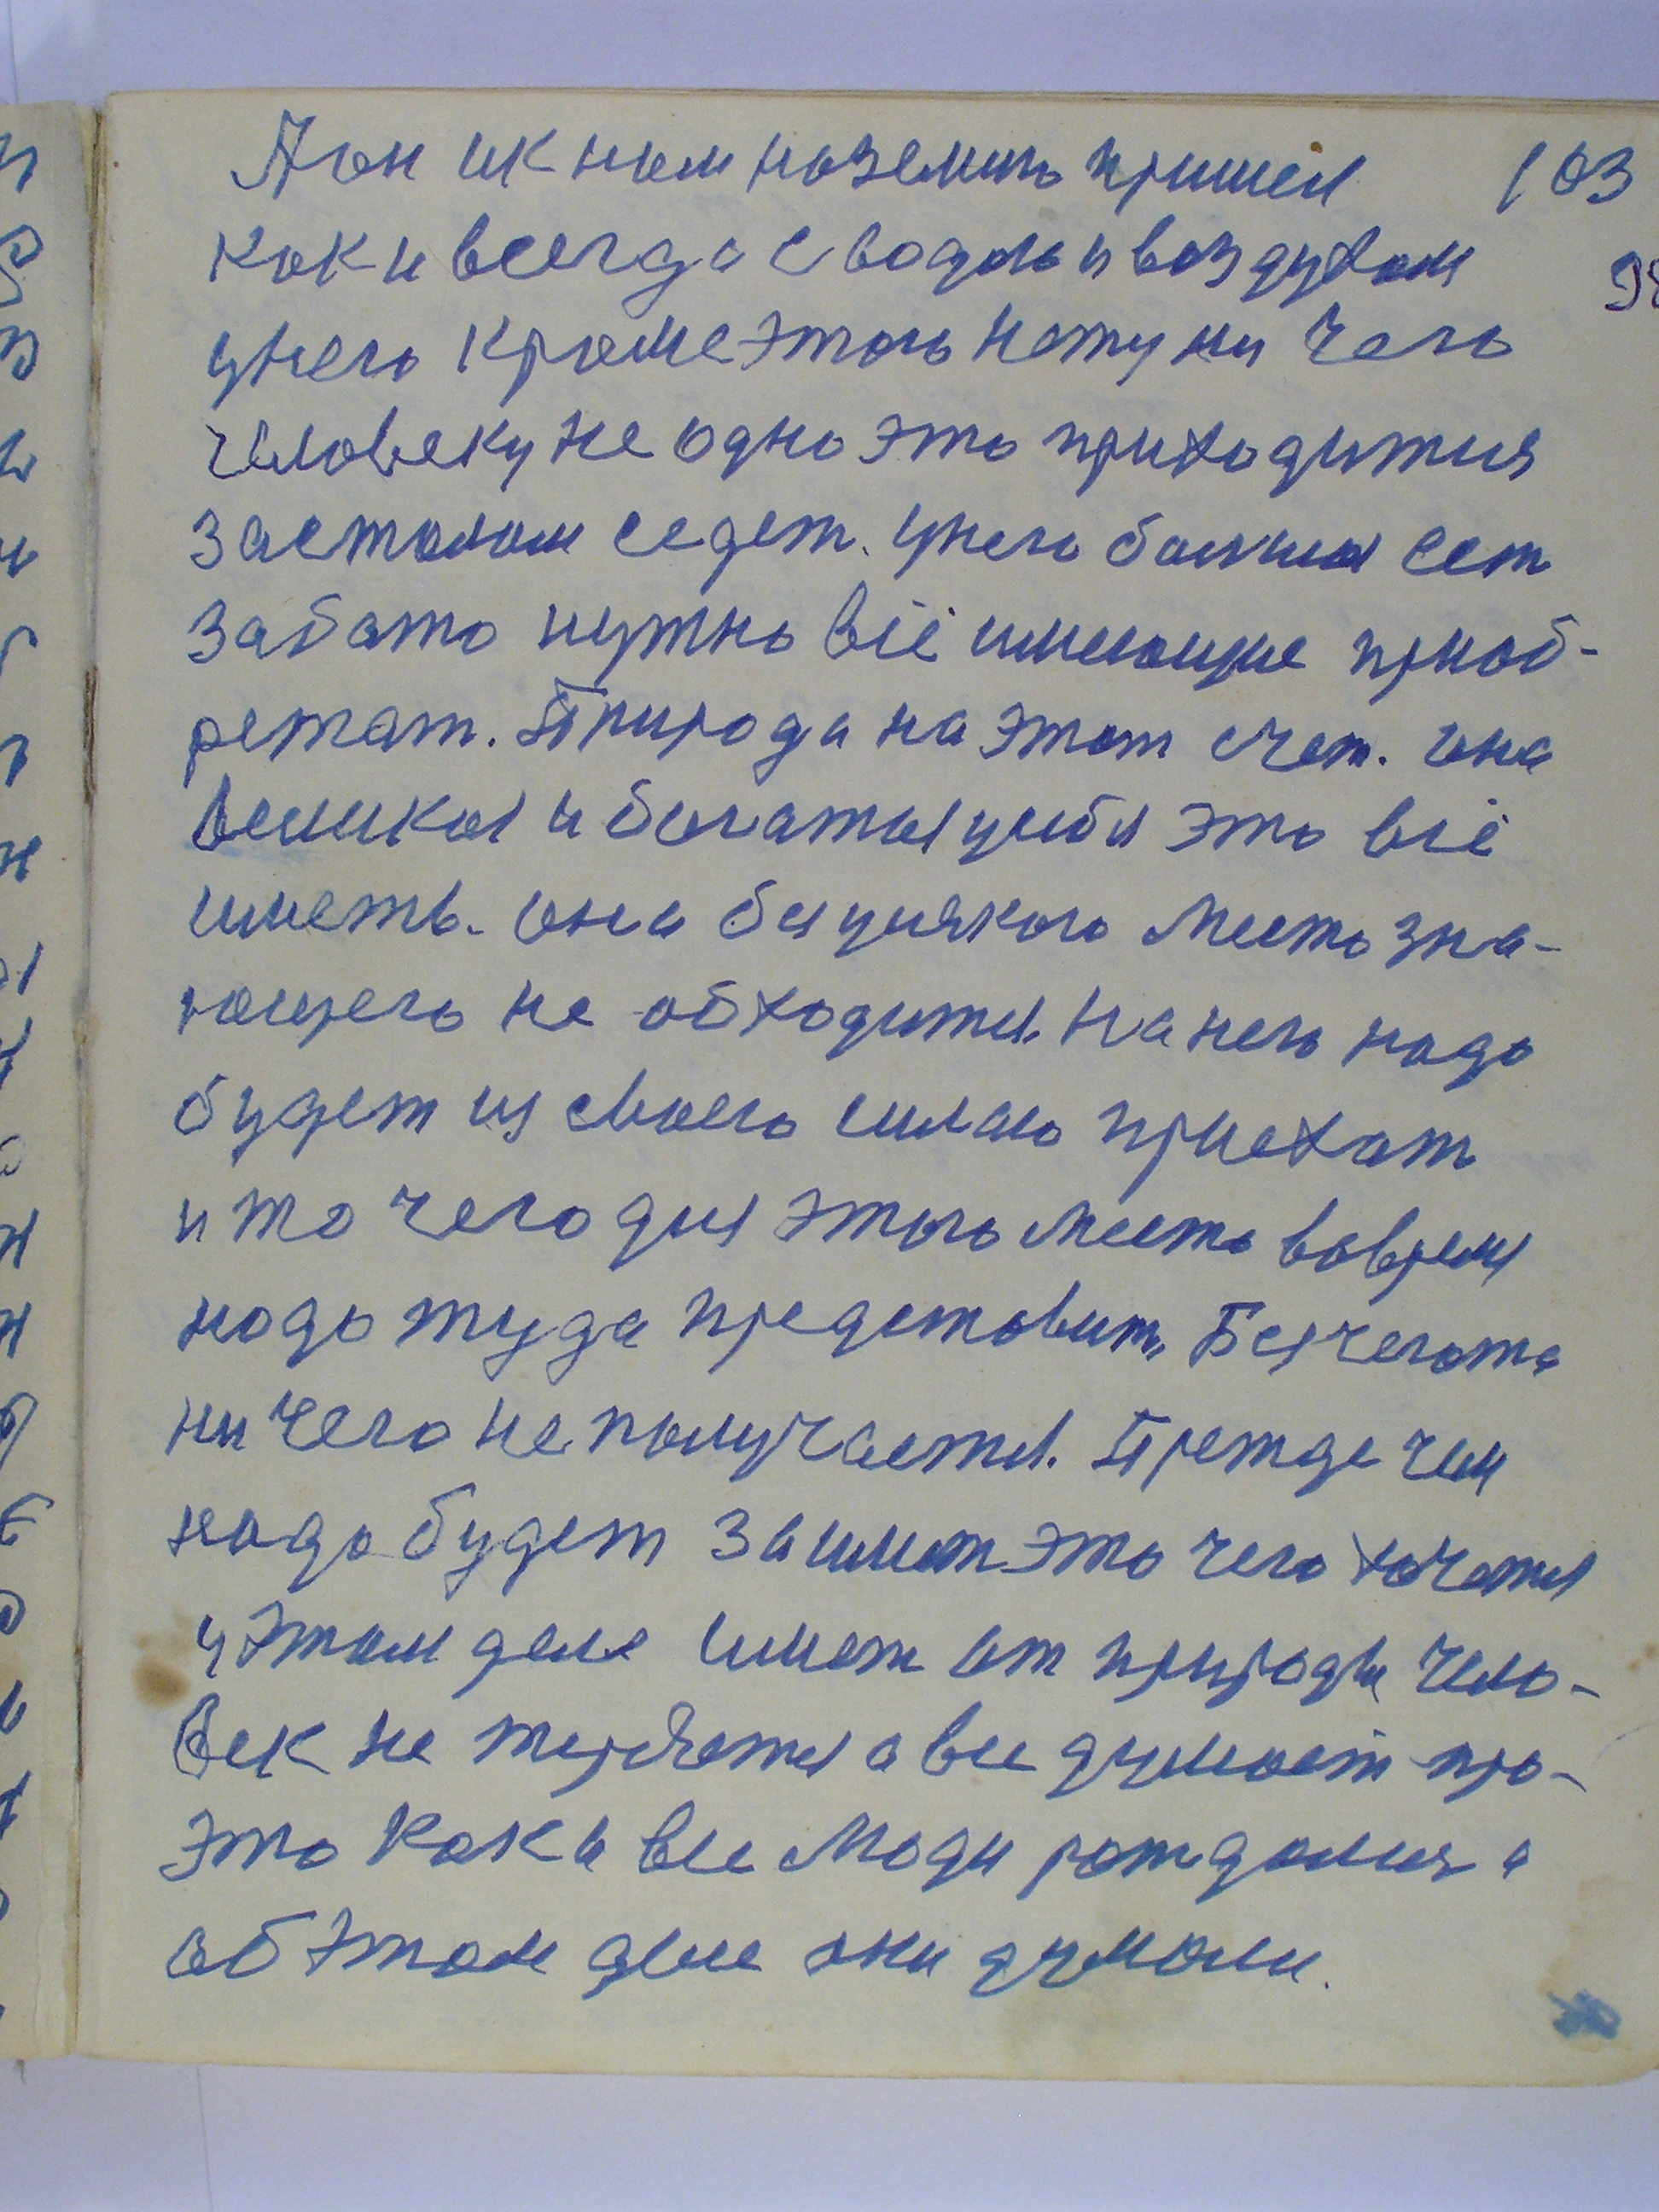 Аон ик нам на землю пришел 103
как и всегда с водою и воздухом 98
унего кроме этого нету ни чего
человеку не одно это приходится
застолом седет. унего большая сет
забато нужно всё имеющие приоб-
ретат. Природа на этот счет. она
великая и богатая уибя это всё
иметь. она без унякого место зна-
ющего не обходится. На него надо
будет из своего силаю приехат
и то чего для этого место вовремя
надо туда представит. Без чегото
ни чего не получается. Прежде чем
надо будет заимет это чего хочется
у этом деле имет от природы чело-
век не теряется а все думает про-
это как и все люди рождалися а
об этом деле они думали.